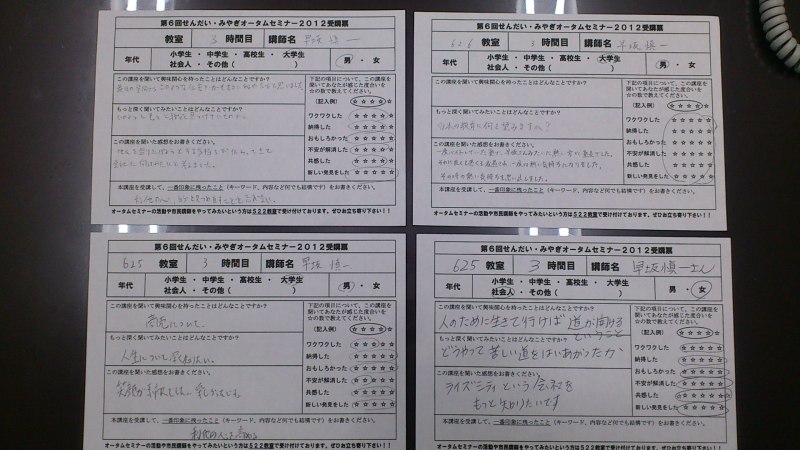 第6回せんだい・みやぎオータムセミナー2012受講票
教室 3 時間目 講師名 早坂 慎一
年代 小学生・中学生・高校生・大学生
社会人・その他( ) 男・女
この講座を聞いて興味関心を持ったことはどんなことですか?
もっと深く聞いてみたいことはどんなことですか?
この講座を聞いた感想をお書きください。
下記の項目について、この講座を聞いてあなたが感じた度合いを☆の数で教えてください。
(記入例) ☆☆☆☆☆
ワクワクした ☆☆☆☆☆
納得した ☆☆☆☆☆
おもしろかった ☆☆☆☆☆
不安が解消した ☆☆☆☆☆
共感した ☆☆☆☆☆
新しい発見をした ☆☆☆☆☆
本講座を受講して、一番印象に残ったこと(キーワード、内容など何でも結構です)をお書きください。
オータムセミナーの活動や市民講師をやってみたいという方は522教室で受け付けております。ぜひお立ち寄り下さい!!
第6回せんだい・みやぎオータムセミナー2012受講票
626 教室 3 時間目 講師名 早坂 慎一
年代 小学生・中学生・高校生・大学生
社会人・その他( ) 男・女
この講座を聞いて興味関心を持ったことはどんなことですか?
もっと深く聞いてみたいことはどんなことですか?
日本の教育に何を望みますか?
この講座を聞いた感想をお書きください。
下記の項目について、この講座を聞いてあなたが感じた度合いを☆の数で教えてください。
(記入例) ☆☆☆☆☆
ワクワクした ☆☆☆☆☆
納得した ☆☆☆☆☆
おもしろかった ☆☆☆☆☆
不安が解消した ☆☆☆☆☆
共感した ☆☆☆☆☆
新しい発見をした ☆☆☆☆☆
本講座を受講して、一番印象に残ったこと(キーワード、内容など何でも結構です)をお書きください。
オータムセミナーの活動や市民講師をやってみたいという方は522教室で受け付けております。ぜひお立ち寄り下さい!!
第6回せんだい・みやぎオータムセミナー2012受講票
625 教室 3 時間目 講師名 早坂 慎一
年代 小学生・中学生・高校生・大学生
社会人・その他( ) 男・女
この講座を聞いて興味関心を持ったことはどんなことですか?
商売について。
もっと深く聞いてみたいことはどんなことですか?
人生について
この講座を聞いた感想をお書きください。
笑顔が
下記の項目について、この講座を聞いてあなたが感じた度合いを☆の数で教えてください。
(記入例) ☆☆☆☆☆
ワクワクした ☆☆☆☆☆
納得した ☆☆☆☆☆
おもしろかった ☆☆☆☆☆
不安が解消した ☆☆☆☆☆
共感した ☆☆☆☆☆
新しい発見をした ☆☆☆☆☆
本講座を受講して、一番印象に残ったこと(キーワード、内容など何でも結構です)をお書きください。
オータムセミナーの活動や市民講師をやってみたいという方は522教室で受け付けております。ぜひお立ち寄り下さい!!
第6回せんだい・みやぎオータムセミナー2012受講票
625 教室 3 時間目 講師名 早坂慎一さん
年代 小学生・中学生・高校生・大学生
社会人・その他( ) 男・女
この講座を聞いて興味関心を持ったことはどんなことですか?
人のために生きて行けば道が開ける
ということ
もっと深く聞いてみたいことはどんなことですか?
どうやって苦しい道をはいあがったか
この講座を聞いた感想をお書きください。
ライズシティという会社を
もっと知りたいです
下記の項目について、この講座を聞いてあなたが感じた度合いを☆の数で教えてください。
(記入例) ☆☆☆☆☆
ワクワクした ☆☆☆☆☆
納得した ☆☆☆☆☆
おもしろかった ☆☆☆☆☆
不安が解消した ☆☆☆☆☆
共感した ☆☆☆☆☆
新しい発見をした ☆☆☆☆☆
本講座を受講して、一番印象に残ったこと(キーワード、内容など何でも結構です)をお書きください。
オータムセミナーの活動や市民講師をやってみたいという方は522教室で受け付けております。ぜひお立ち寄り下さい!!